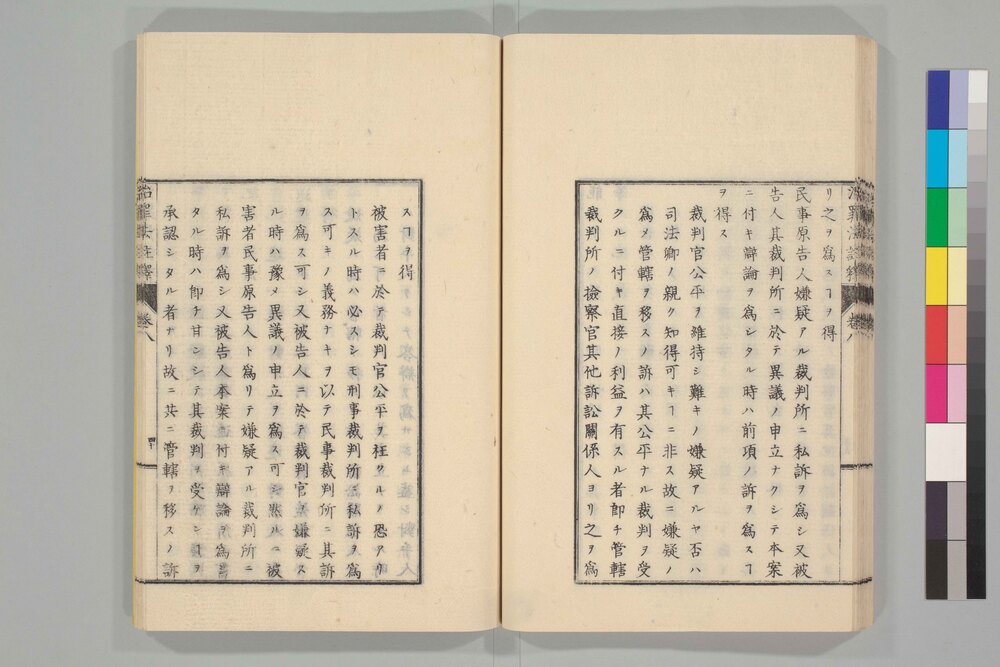 治罪法註釋 卷八
リ之ヲ爲スヿヲ得
民事原告人嫌疑アル裁判所ニ私訴ヲ爲シ又被
告人其裁判所ニ於テ異議ノ申立ナクシテ本案
ニ付キ辯論ヲ爲シタル時ハ前項ノ訴ヲ爲スヿ
ヲ得ス
裁判官公平ヲ維持シ難キノ嫌疑アルヤ否ハ
司法卿ノ親ク知得可キヿニ非ス故ニ嫌疑ノ
爲メ管轄ヲ移スノ訴ハ其公平ナル裁判ヲ受
クルニ付キ直接ノ利益ヲ有スル者即チ管轄
裁判所ノ撿察官其他訴訟關係人ヨリ之ヲ爲
スヿヲ得
被害者ニ於テ裁判官公平ヲ枉クルノ恐アリ
トスル時ハ必スシモ刑事裁判所ニ私訴ヲ爲
ス可キノ義務ナキヲ以テ民事裁判所ニ其訴
ヲ爲ス可シ又被告人ニ於テ裁判官ヲ嫌疑ス
ル時ハ豫メ異議ノ申立ヲ爲ス可シ然ルニ被
害者民事原告人ト爲リテ嫌疑アル裁判所ニ
私訴ヲ爲シ又被告人本案ニ付キ辯論ヲ爲シ
タル時ハ即チ甘ンシテ其裁判ヲ受ケンヿヲ
承認シタル者ナリ故ニ共ニ管轄ヲ移スノ訴
治罪法註釋 卷八 四十